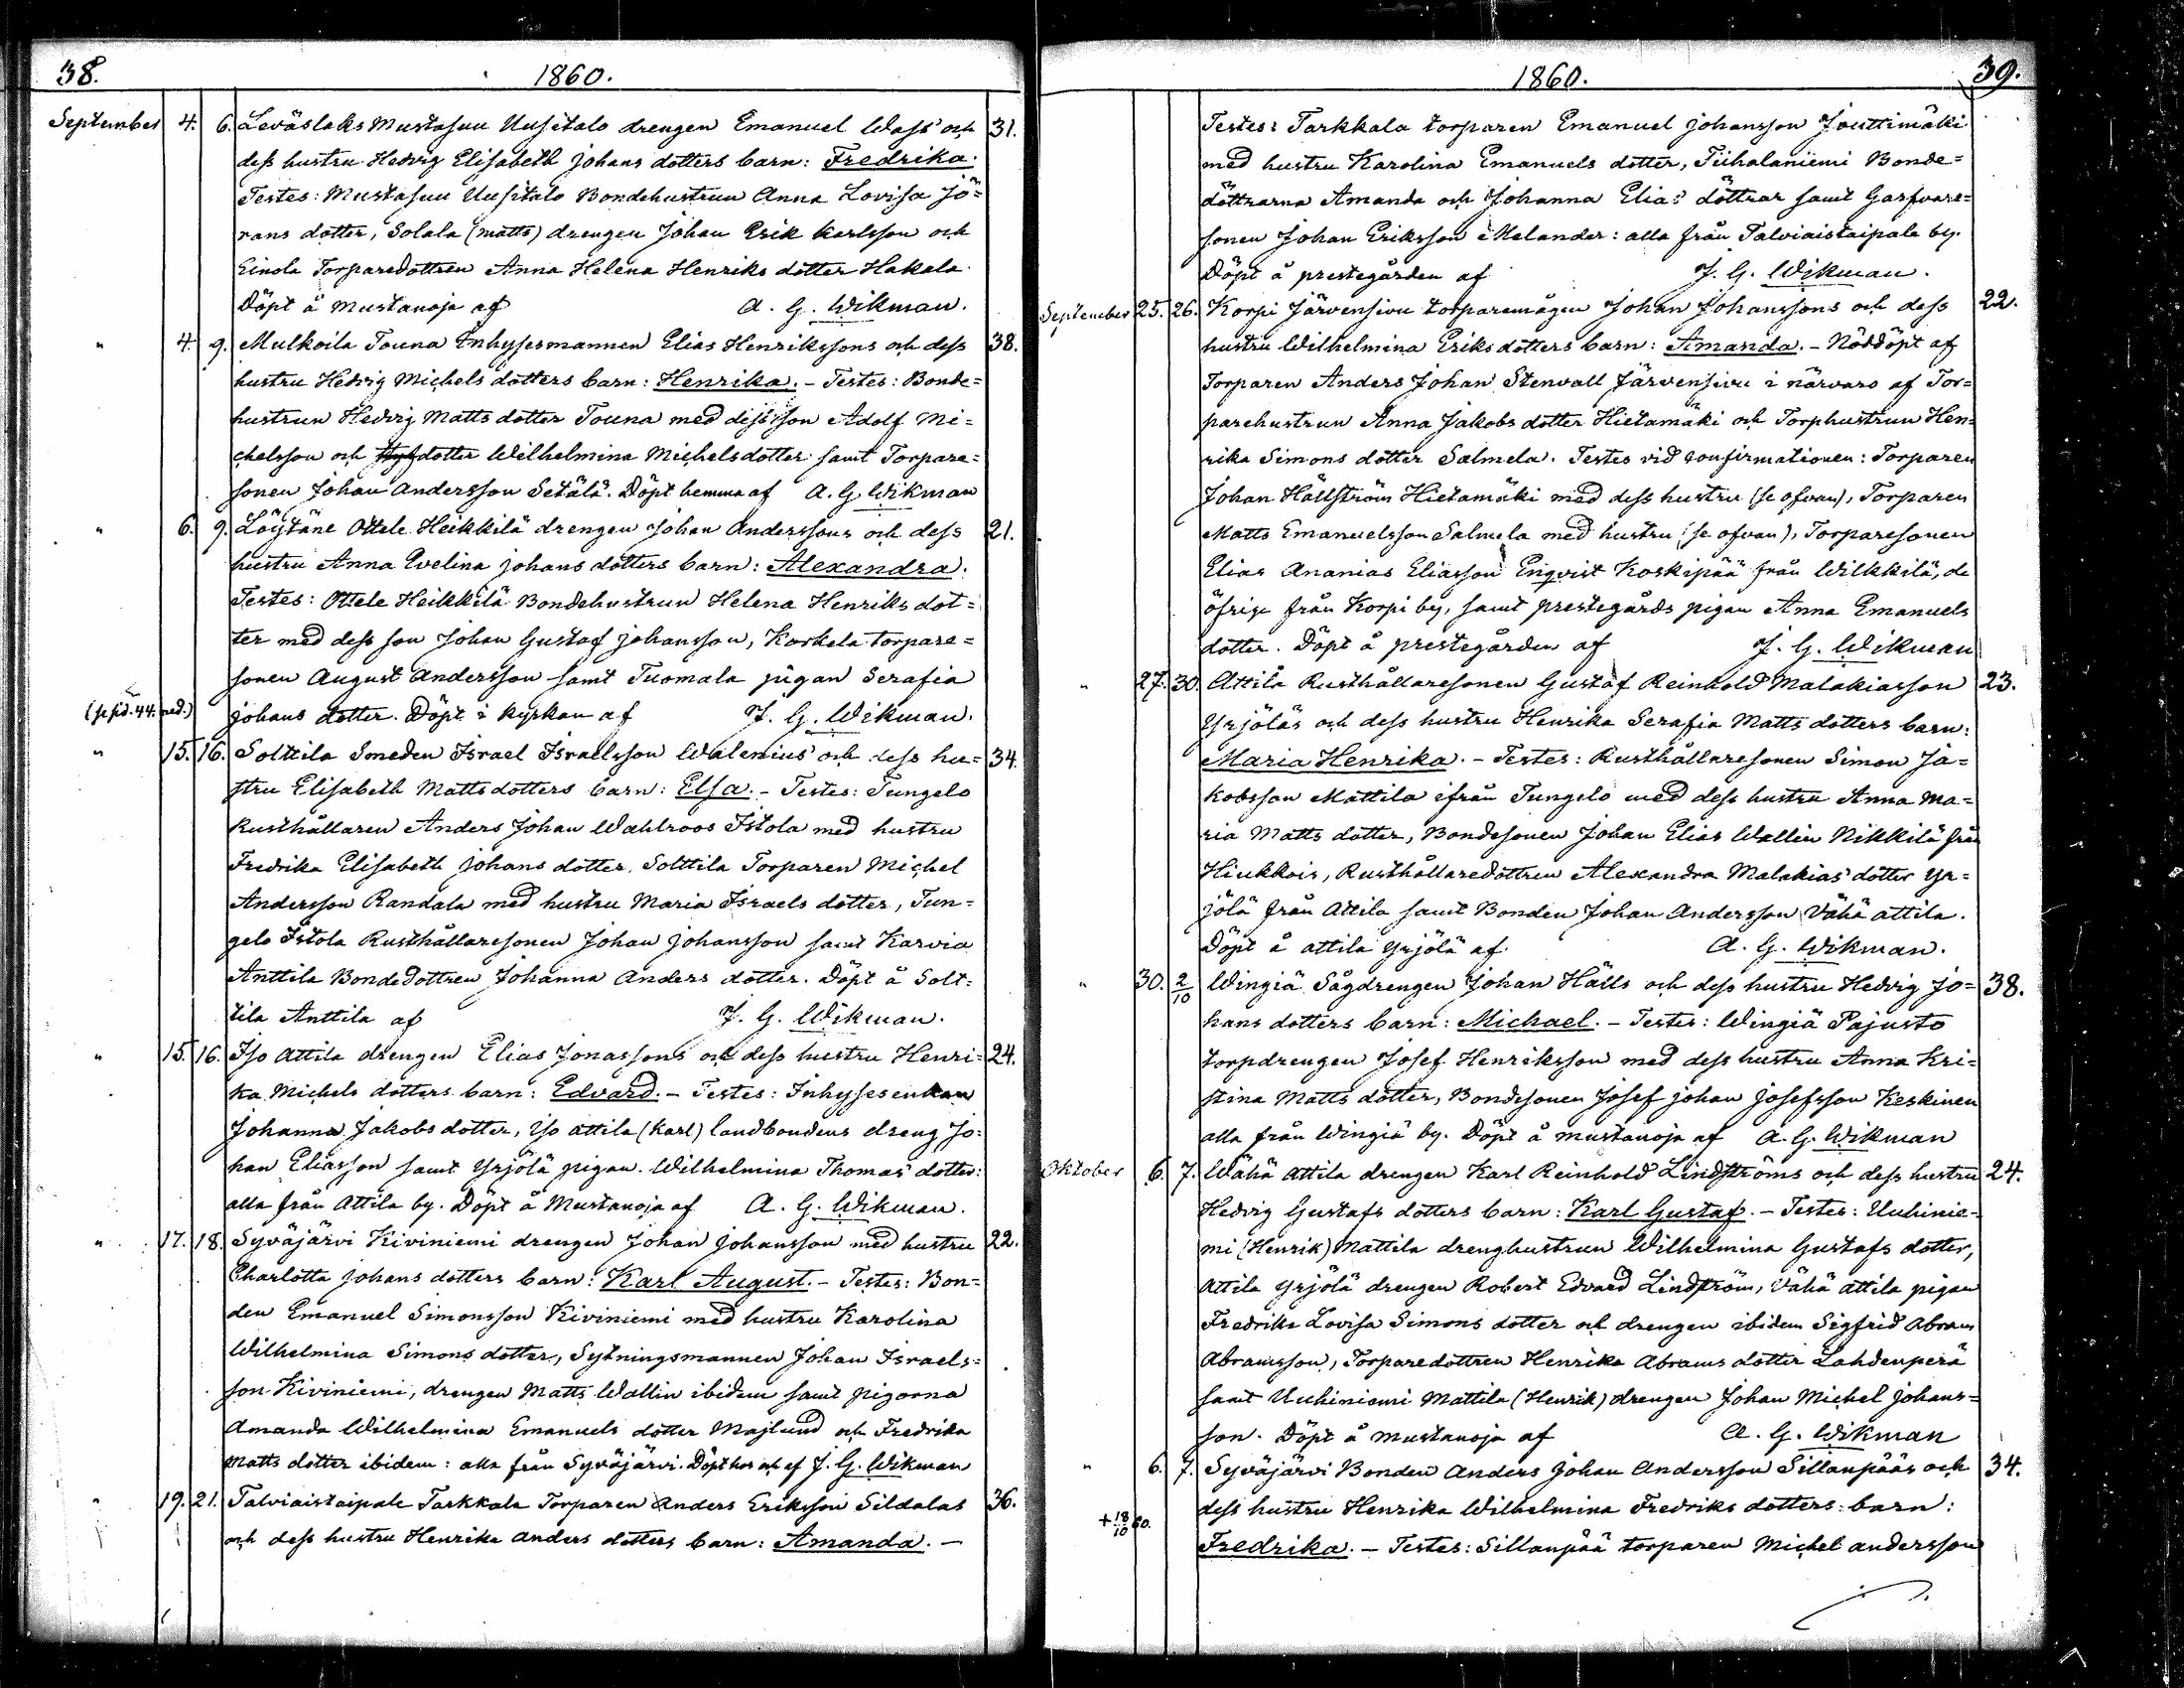 38.
1860.
September 4. 6. Leväslaks Mustasuu Uusitalo drengen Emanuel Wass' och 31.
dess hustru Hedvig Elisabeth Johans dotters barn: Fredrika.
Testes: Mustasuu Uusitalo Bondehustrun Anna Lovisa Jö=
rans dotter, Solala (Matts) drengen Johan Erik Karlsson och
Einola Torparedottren Anna Helena Henriks dotter Hakala.
Döpt å Mustanoja af A. G. Wikman.
" 4. 9. Mulkoila Touna Inhysesmannen Elias Henrikssons och dess 38.
hustru Hedvig Michels dotters barn: Henrika. - Testes: Bonde=
hustrun Hedvig Matts dotter Touna med dess son Adolf Mi=
chelsson och dotter Wilhelmina Michelsdotter samt Torpare=
sonen Johan Andersson Setälä. Döpt hemma af A. G. Wikman
" 6. 9. Löytäne Ottele Heikkilä drengen Johan Anderssons och dess 21.
hustru Anna Evelina Johans dotters barn: Alexandra.
Testes: Ottele Heikkilä Bondehustrun Helena Henriks dot=
ter med dess son Johan Gustaf Johansson, Korkela torpare=
sonen August Andersson samt Tuomala pigan Serafia
(se sid. 44. ned.) Johans dotter. Döpt i kyrkan af J. G. Wikman.
" 15. 16. Solttila Smeden Israel Israelsson Walenius' och dess hu= 34.
stru Elisabeth Mattsdotters barn: Elsa. - Testes: Tungelo
Rusthållaren Anders Johan Wahlroos Istola med hustru
Fredrika Elisabeth Johans dotter, Solttila Torparen Michel
Andersson Randala med hustru Maria Israels dotter, Tun=
gelo Istola Rusthållaresonen Johan Johansson samt Karvia
Anttila Bondedottren Johanna Anders dotter. Döpt å Solt=
tila Anttila af J. G. Wikman.
" 15. 16. Iso Attila drengen Elias Jonassons och dess hustru Henri= 24.
ka Michels dotters barn: Edvard. - Testes: Inhysesenkan
Johanna Jakobs dotter, Iso Attila (Karl) landbondens dreng Jo=
han Eliasson samt Yrjölä pigan Wilhelmina Thomas' dotter:
alla från Attila by. Döpt å Mustanoja af A. G. Wikman.
" 17. 18. Syväjärvi Kiviniemi drengen Johan Johansson med hustru 22.
Charlotta Johans dotters barn: Karl August. - Testes: Bon=
den Emanuel Simonsson Kiviniemi med hustru Karolina
Wilhelmina Simons dotter, Sytningsmannen Johan Israels=
son Kiviniemi, drengen Matts Wallin ibidem samt pigorna
Amanda Wilhelmina Emanuels dotter Majlund och Fredrika
Matts dotter ibidem: alla från Syväjärvi. Döpt hos och af J. G. Wikman
" 19. 21. Talviaistaipale Tarkkala Torparen Anders Eriksson Sildalas 36.
och dess hustru Henrika Anders dotters barn: Amanda. -
1860.
39.
Testes: Tarkkala torparen Emanuel Johansson Jouttimäki
med hustru Karolina Emanuels dotter, Tiihalaniemi Bonde=
döttrarna Amanda och Johanna Elias' döttrar samt Garfvare=
sonen Johan Eriksson Melander: alla från Talviaistaipale by.
Döpt å prestegården af J. G. Wikman.
September 25. 26. Korpi Järvensivu torparemågen Johan Johanssons och dess 22.
hustru Wilhelmina Eriksdotters barn: Amanda. - Nöddöpt af
Torparen Anders Johan Stenvall Järvensivu i närvaro af Tor=
parehustrun Anna Jakobs dotter Hietamäki och Torphustrun Hen=
rika Simons dotter Salmela. Testes vid confirmationen: Torparen
Johan Hällström Hietamäki med dess hustru (se ofvan), Torparen
Matts Emanuelsson Salmela med hustru (se ofvan), Torparesonen
Elias Ananias Eliasson Enqvist Koskipää från Wilkkilä, de
öfrige från Korpi by, samt prestegårds pigan Anna Emanuels
dotter. Döpt å prestegården af J. G. Wikman
" 27. 30. Attila Rusthållaresonen Gustaf Reinhold Malakiasson 23.
Yrjöläs och dess hustru Henrika Serafia Matts dotters barn:
Maria Henrika. - Testes: Rusthållaresonen Simon Ja=
kobsson Mattila ifrån Tungelo med dess hustru Anna Ma=
ria Matts dotter, Bondesonen Johan Elias Wallin Nikkilä från
Hiukkois, Rusthållaredottren Alexandra Malakias' dotter Yr=
jölä från Attila samt Bonden Johan Andersson Vähä Attila.
Döpt å Attila Yrjölä af A. G. Wikman.
" 30. 2/10 Wingiä Sågdrengen Johan Hälls och dess hustru Hedvig Jo= 38.
hans dotters barn: Michael. - Testes: Wingiä Pajusto
torpdrengen Josef Henriksson med dess hustru Anna Kri=
stina Matts dotter, Bondesonen Josef Johan Josefsson Keskinen
alla från Wingiä by. Döpt å Mustanoja af A. G. Wikman
Oktober 6. 7. Wähä Attila drengen Karl Reinhold Lindströms och dess hustru 24.
Hedvig Gustafs dotters barn: Karl Gustaf. - Testes: Uuhinie=
mi (Henrik) Mattila drenghustrun Wilhelmina Gustafs dotter,
Attila Yrjölä drengen Robert Edvard Lindström, Vähä Attila pigan
Fredrika Lovisa Simons dotter och drengen ibidem Sigfrid Abram
Abramsson, Torparedottren Henrika Abrams dotter Lahdenperä
samt Uuhiniemi Mattila (Henrik) drengen Johan Michel Johans=
son. Döpt å Mustanoja af A. G. Wikman
" 6. 7. Syväjärvi Bonden Anders Johan Andersson Sillanpääs och 34.
+ 18/10 60. dess hustru Henrika Wilhelmina Fredriks dotters barn:
Fredrika. - Testes: Sillanpää torparen Michel Andersson